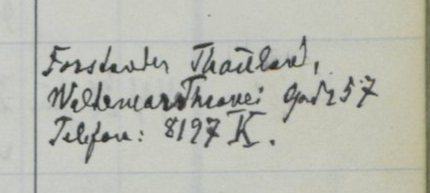 Forstander Thaulow,
Waldemar Thranes Gade 57
Telefon: 8197 K.